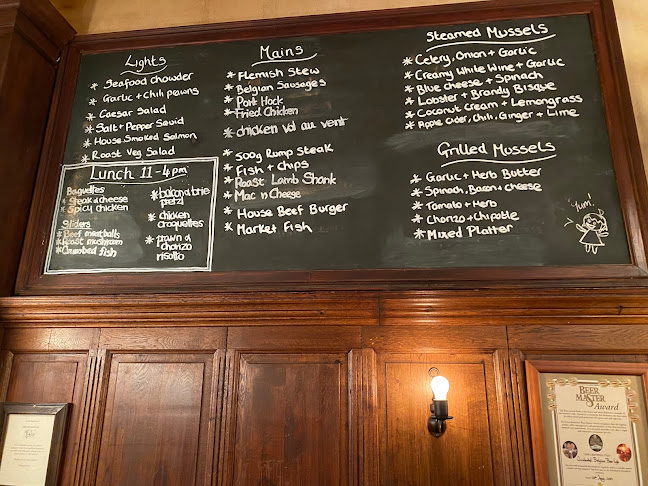 Lights
* Seafood chowder
* Garlic + Chili prawns
* Caesar Salad
* Salt + Pepper Squid
* House Smoked Salmon
* Roast Veg Salad
Lunch 11-4pm
Baguettes
* Steak & cheese
* Spicy chicken
Sliders
* Beef meatballs
* Roast mushroom
* Crumbed fish
* bacon & brie
pretzl
* chicken
croquettes
* prawn &
chorizo
risotto
Mains
* Flemish Stew
* Belgian Sausages
* Pork Hock
* Fried Chicken
* chicken vol au vent
* 500g Rump Steak
* Fish + chips
* Roast Lamb Shank
* Mac n Cheese
* House Beef Burger
* Market Fish
Steamed Mussels
* Celery, Onion + Garlic
* Creamy White Wine + Garlic
* Blue cheese + Spinach
* Lobster + Brandy Bisque
* Coconut Cream + Lemongrass
* Apple Cider, Chili, Ginger + Lime
Grilled Mussels
* Garlic + Herb Butter
* Spinach, Bacon + cheese
* Tomato + Herb
* Chorizo + Chipotle
* Mixed Platter
Yum!
BEER
MASTER
Award